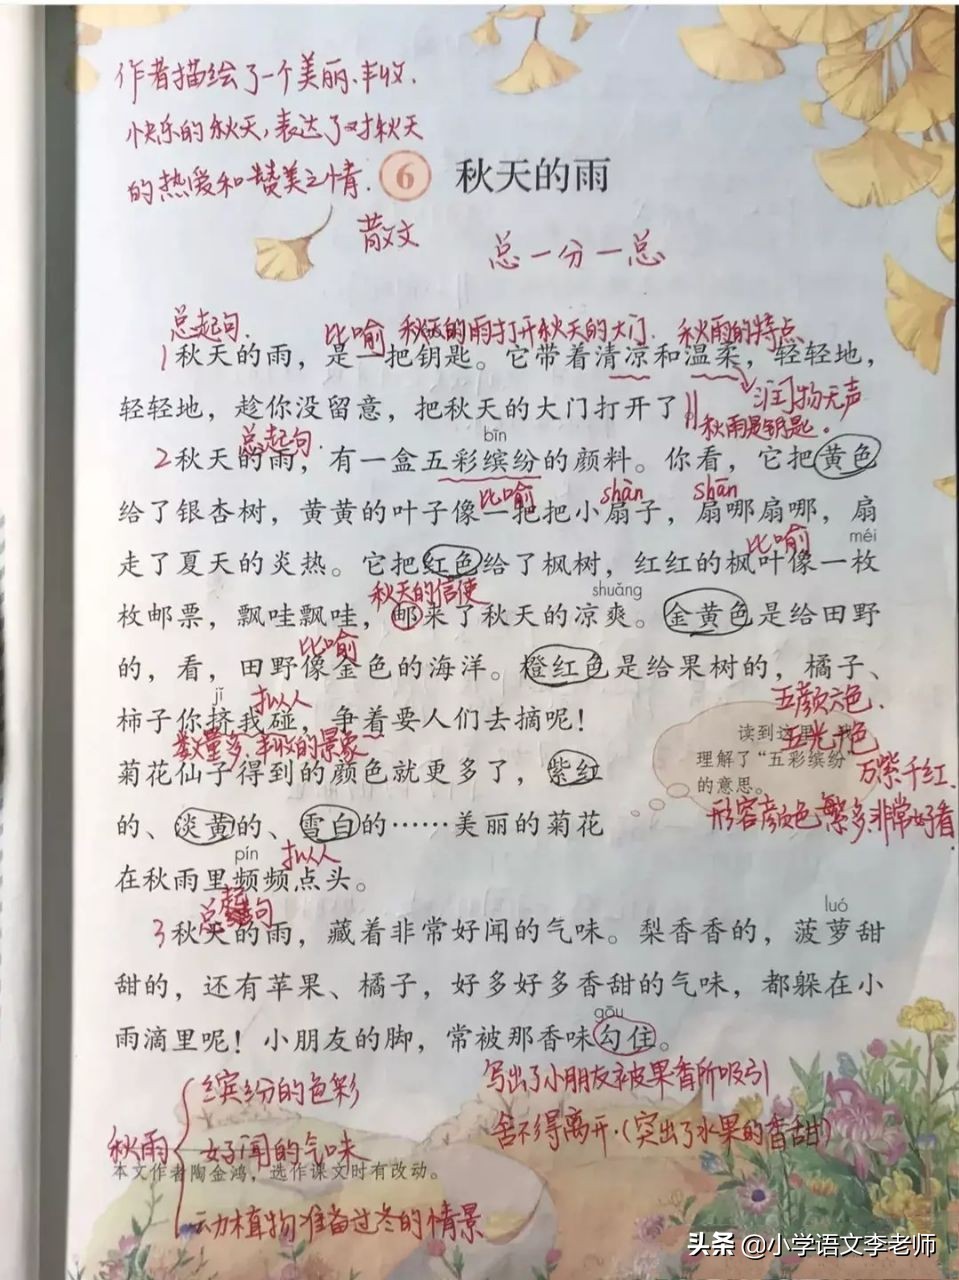 作者描绘了一个美丽、丰收、
快乐的秋天,表达了对秋天
的热爱和赞美之情.
6 秋天的雨
散文
总一分一总
总起句. 比喻 秋天的雨打开秋天的大门. 秋雨的特点
1秋天的雨，是一把钥匙。它带着清凉和温柔，轻轻地，
润物无声
轻轻地，趁你没留意，把秋天的大门打开了。
秋雨是钥匙。
总起句. bīn
2秋天的雨，有一盒五彩缤纷的颜料。你看，它把黄色
比喻 shàn shān
给了银杏树，黄黄的叶子像一把把小扇子，扇哪扇哪，扇
比喻 méi
走了夏天的炎热。它把红色给了枫树，红红的枫叶像一枚
秋天的信使 shuǎng
枚邮票，飘哇飘哇，邮来了秋天的凉爽。金黄色是给田野
比喻
的，看，田野像金色的海洋。橙红色是给果树的，橘子、
jǐ 拟人
柿子你挤我碰，争着要人们去摘呢！
数量多.丰收的景象
菊花仙子得到的颜色就更多了，紫红
的、淡黄的、雪白的……美丽的菊花
pín 拟人
在秋雨里频频点头。
五颜六色.
读到这里，我
五光十色
理解了“五彩缤纷”
万紫千红.
的意思。
形容颜色繁多,非常好看
总起句
luó
3秋天的雨，藏着非常好闻的气味。梨香香的，菠萝甜
甜的，还有苹果、橘子，好多好多香甜的气味，都躲在小
gōu
雨滴里呢！小朋友的脚，常被那香味勾住。
写出了小朋友被果香所吸引
舍不得离开.(突出了水果的香甜)
秋雨
缤纷的色彩
好闻的气味
动植物准备过冬的情景
本文作者陶金鸿，选作课文时有改动。
头条 @小学语文李老师